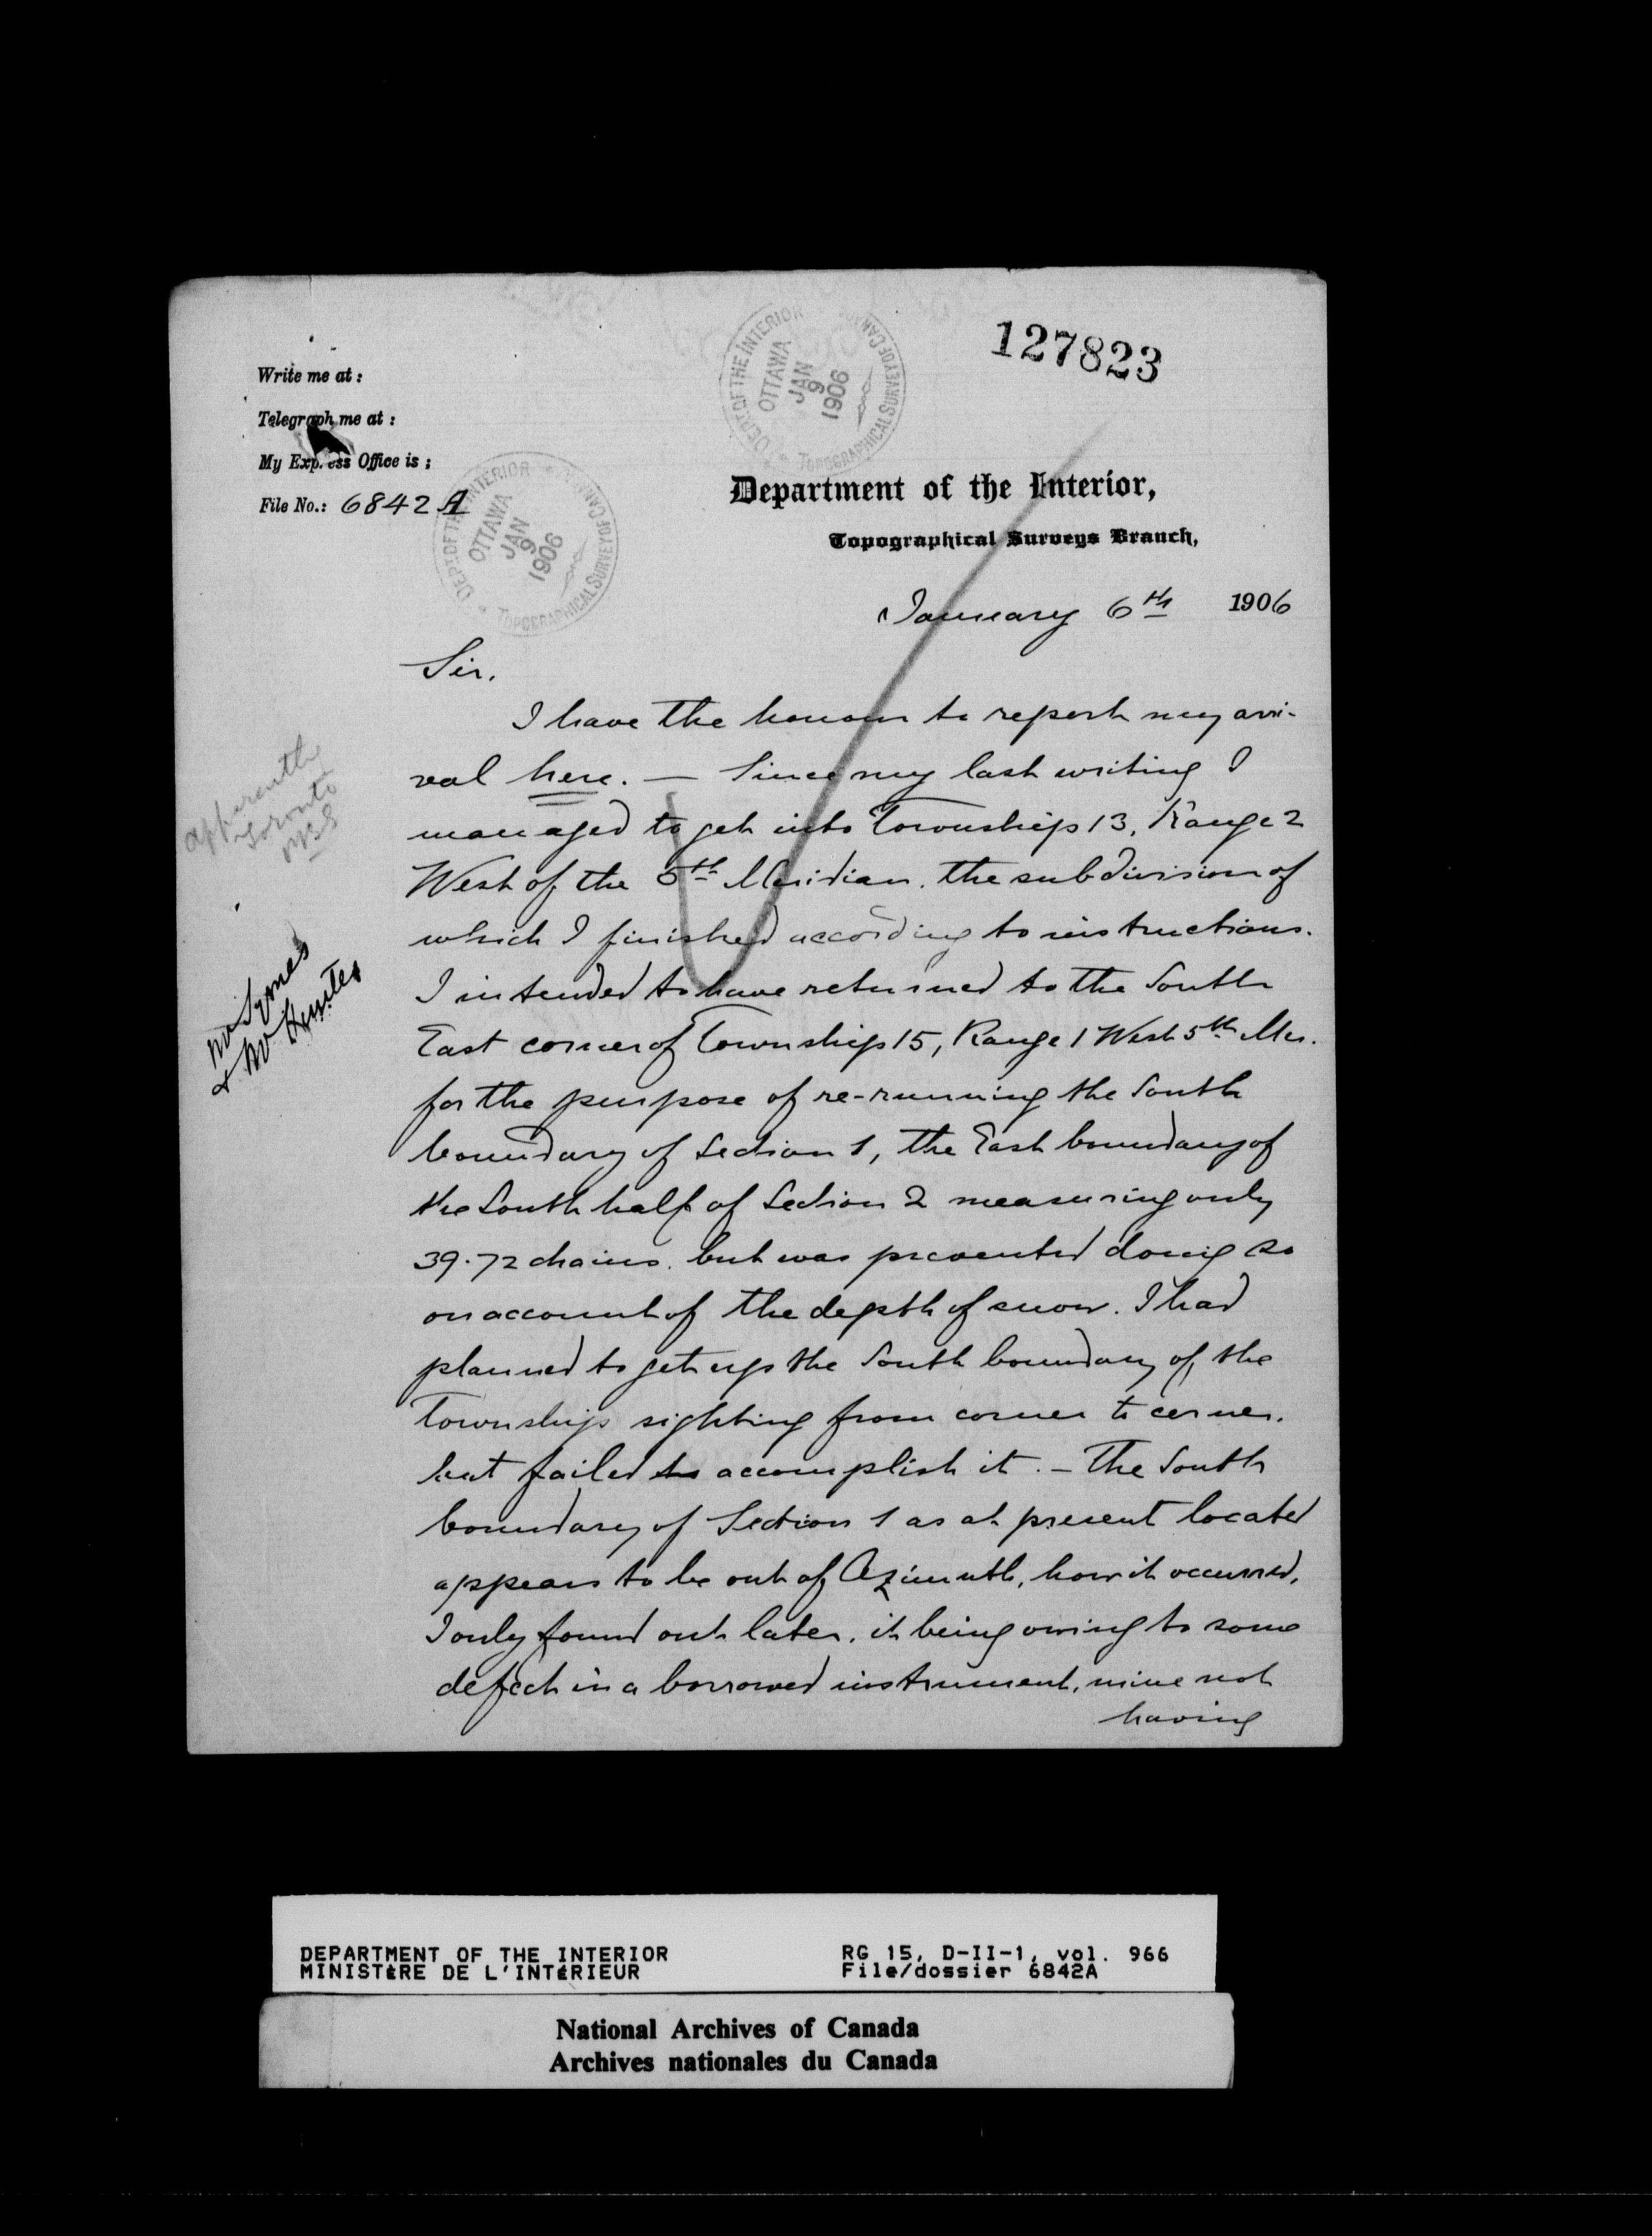 127823
DEPT. OF THE INTERIOR
OTTAWA
JAN
9
1906
TOPOGRAPHICAL SURVEY OF CANADA
Write me at :
Telegraph me at :
My Express Office is ;
File No.: 6842 A
DEPT. OF THE INTERIOR
OTTAWA
JAN
9
1906
TOPOGRAPHICAL SURVEY OF CANADA
Department of the Interior,
Topographical Surveys Branch,
January 6th 1906
Sir.
I have the honour to report my arri-
val here. — Since my last writing I
managed to get into Township 13, Range 2
West of the 5th Meridian. the subdivision of
which I finished according to instructions.
I intended to have returned to the South
East corner of Township 15, Range 1 West 5th Mer.
for the purpose of re-running the South
boundary of Section 1, the East boundary of
the South half of Section 2 measuring only
39.72 chains. but was prevented doing so
on account of the depth of snow. I had
planned to get up the South boundary of the
Township sighting from corner to corner.
but failed to accomplish it. — The South
boundary of Section 1 as at present located
appears to be out of Azimuth, how it occurred,
I only found out later, it being owing to some
defect in a borrowed instrument, mine not
having
apparently
Toronto
Mr Symes
& Mr Hunter
DEPARTMENT OF THE INTERIOR
MINISTèRE DE L'INTéRIEUR
RG 15, D-II-1, vol. 966
File/dossier 6842A
National Archives of Canada
Archives nationales du Canada